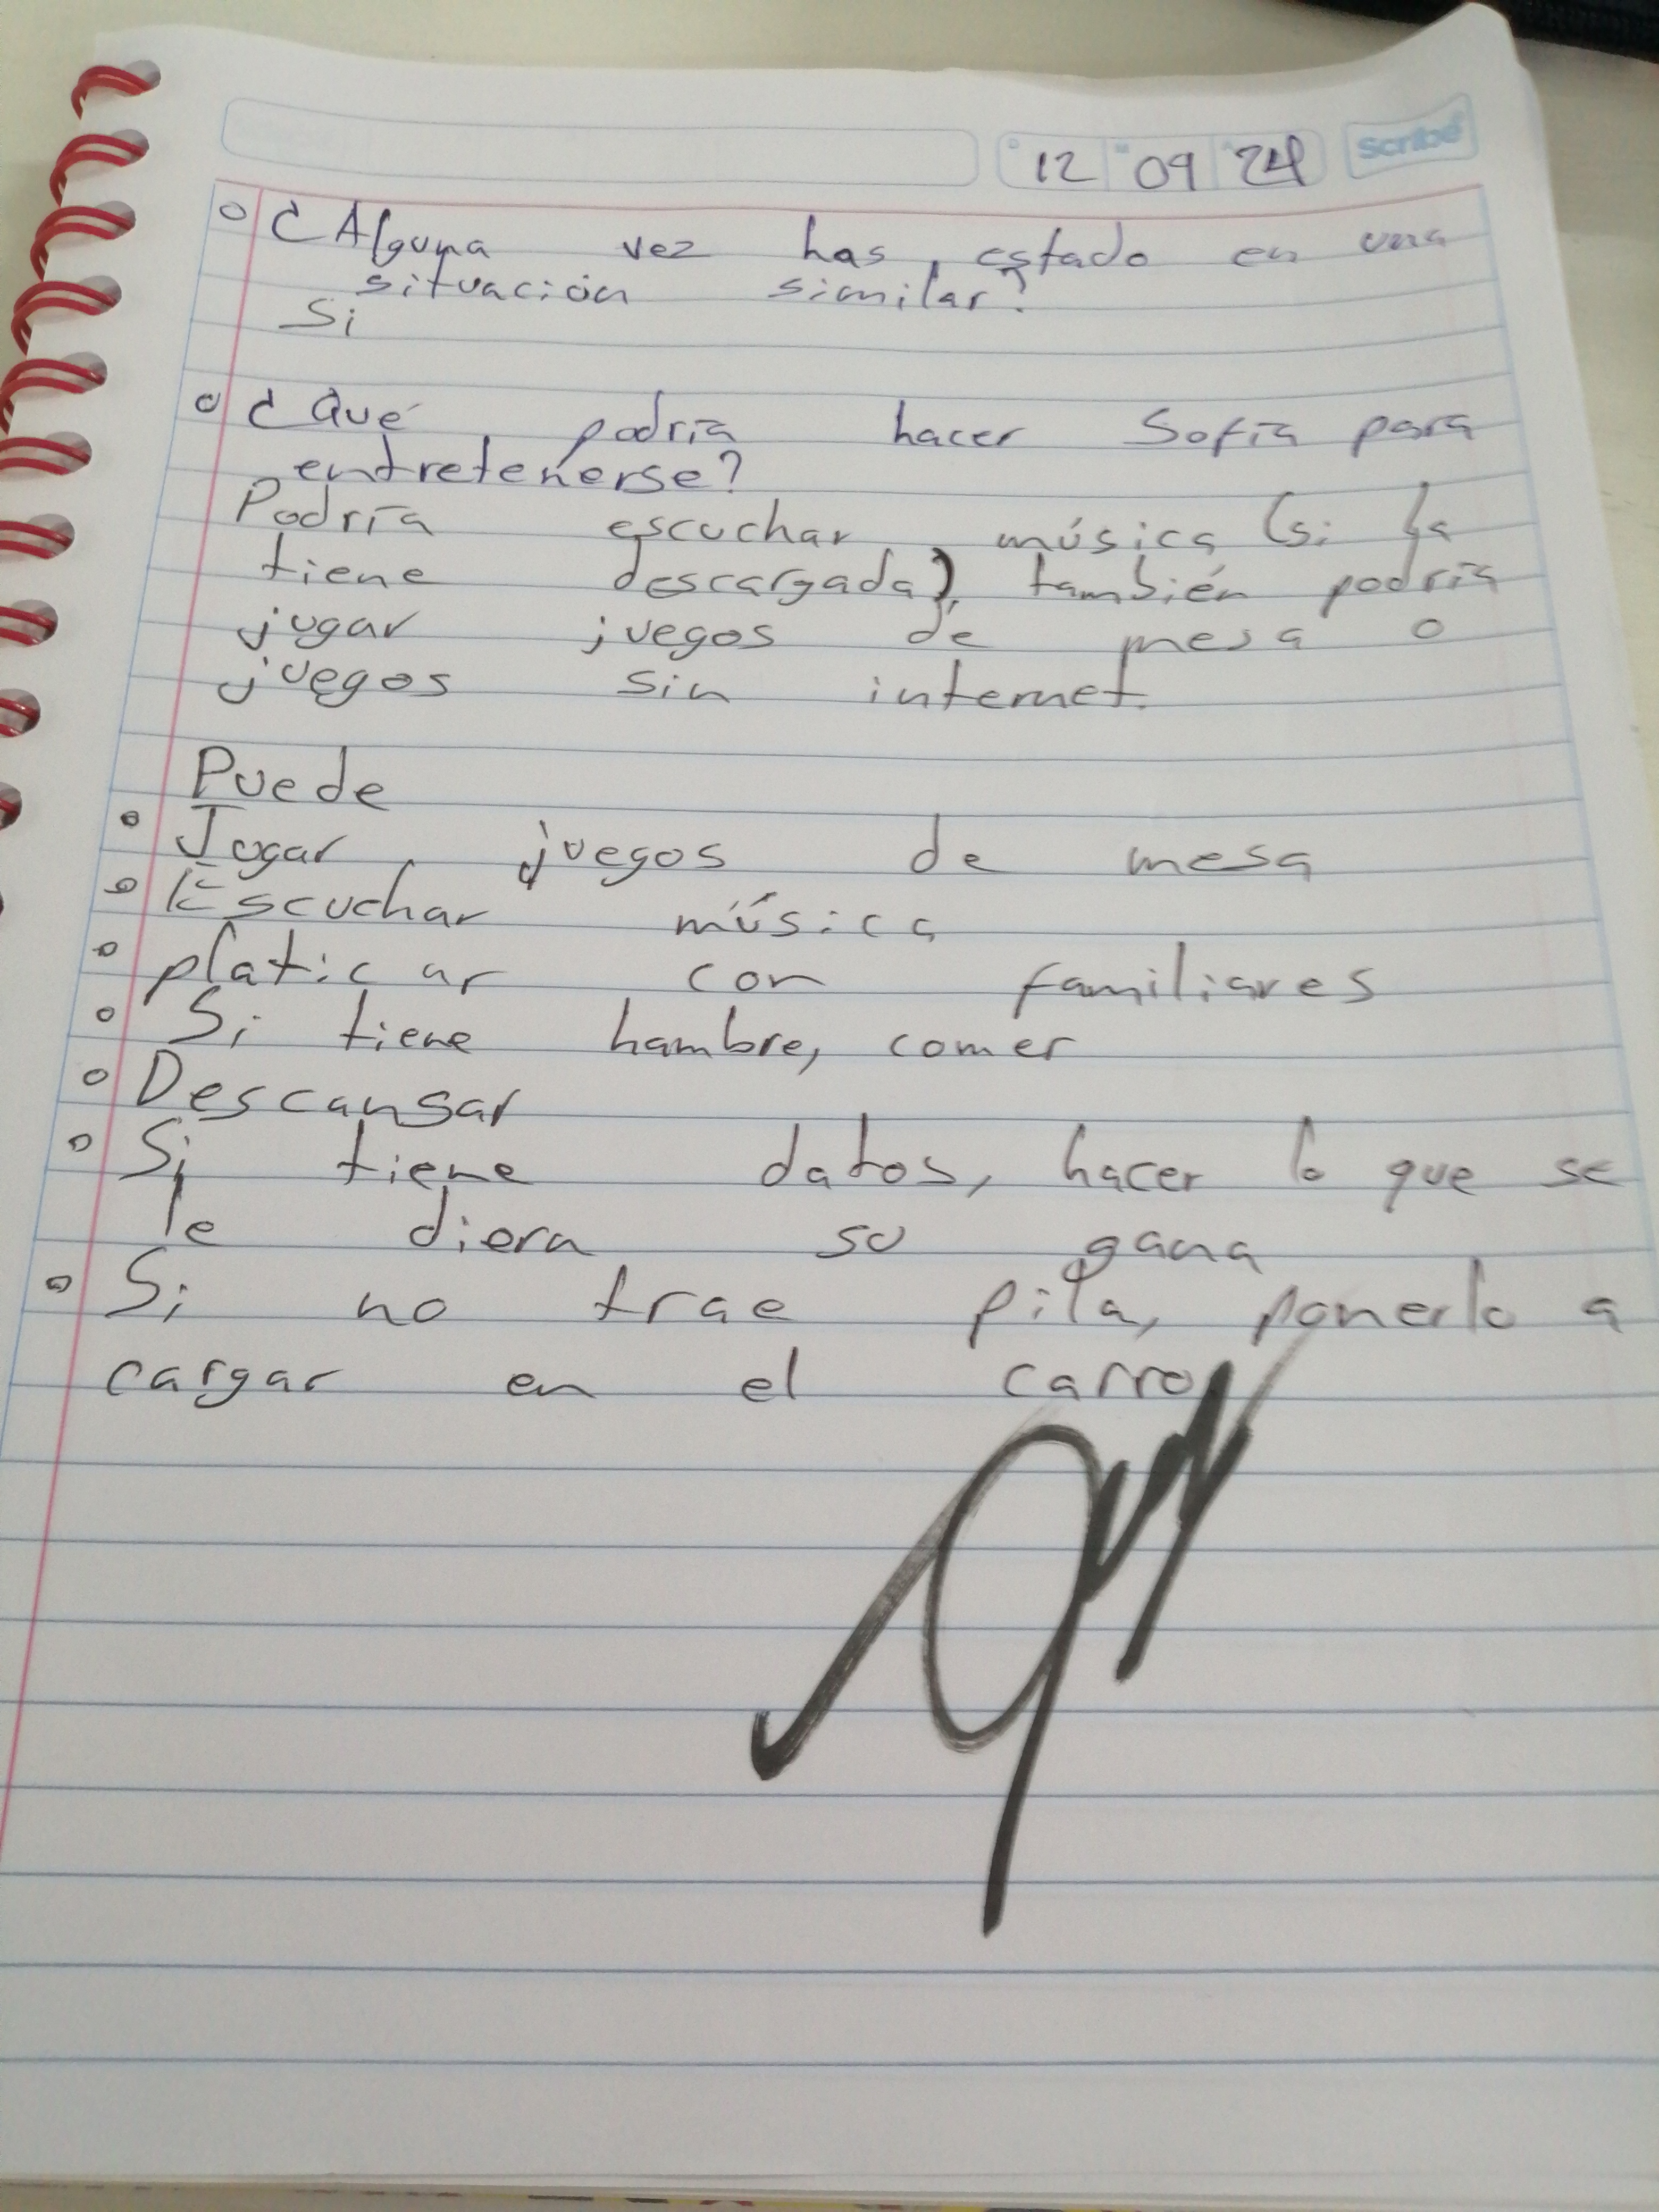 12 09 24 scribe
¿Alguna vez has estado en una
situación similar?
Si
¿Qué podría hacer Sofía para
entretenerse?
Podría escuchar música (si la
tiene descargada), también podría
jugar juegos de mesa o
juegos sin internet.
Puede
Jugar juegos de mesa
Escuchar música
platicar con familiares
Si tiene hambre, comer
Descansar
Si tiene datos, hacer lo que se
le diera su gana
Si no trae pila, ponerlo a
cargar en el carro